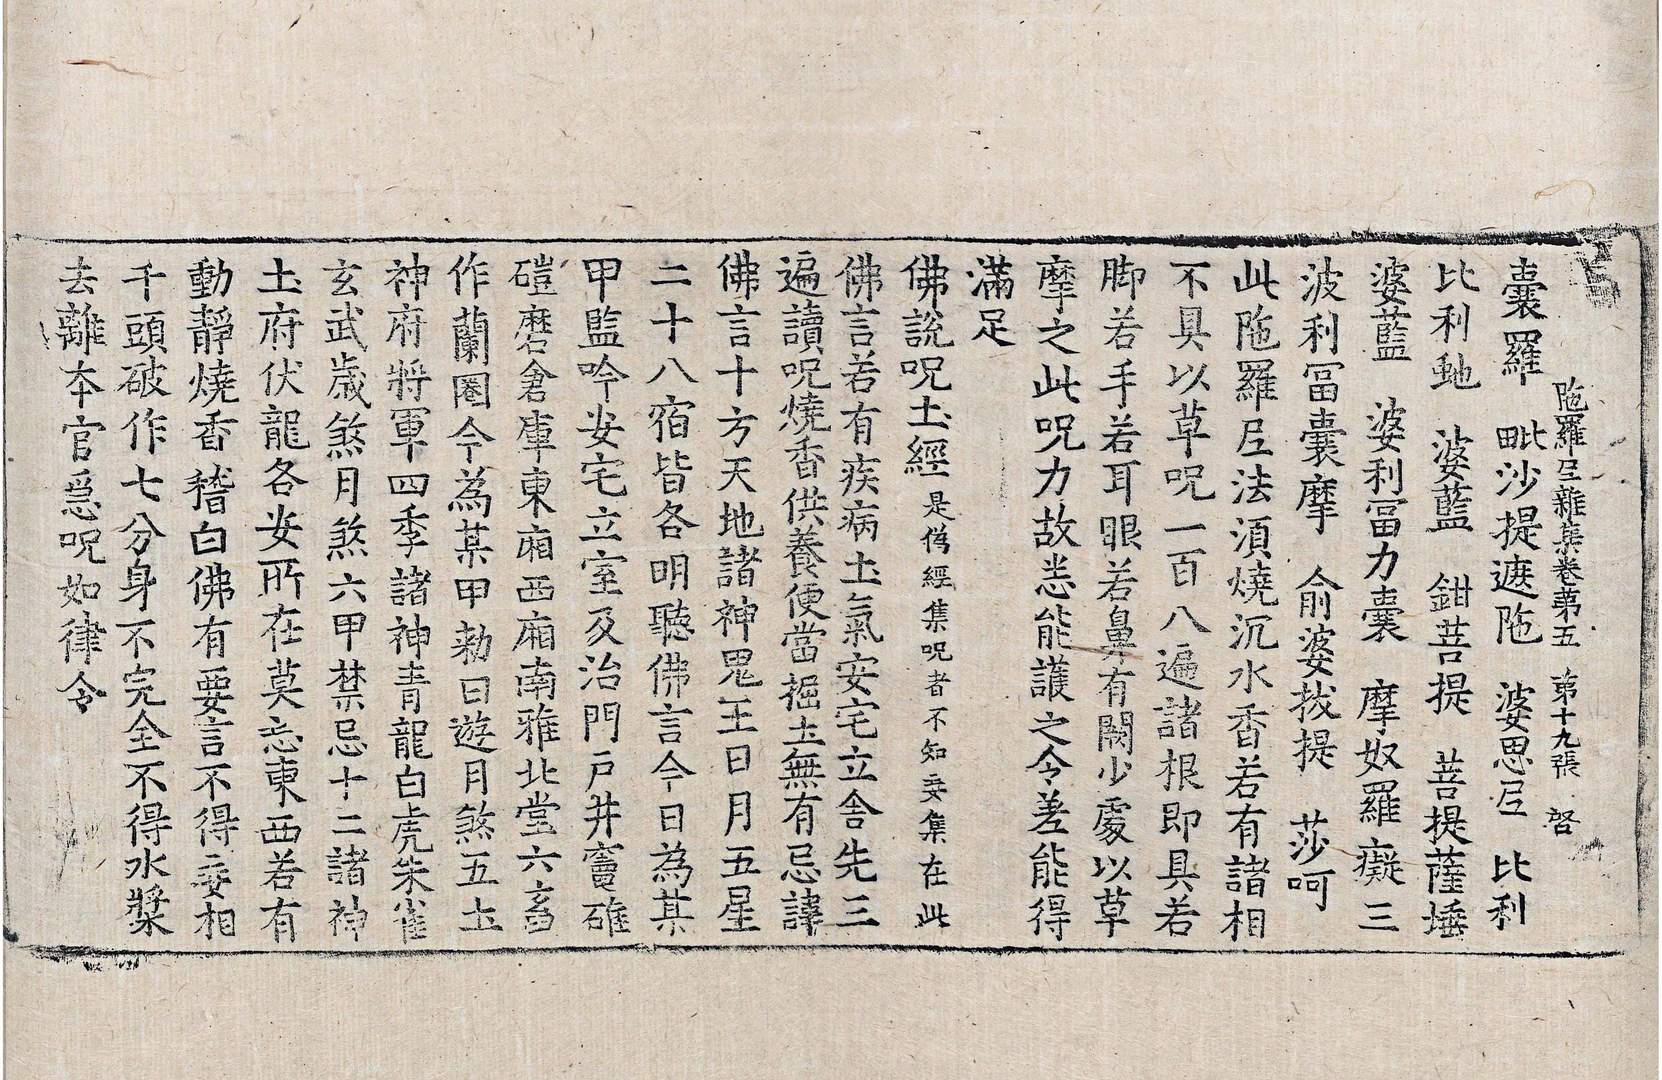 陁羅𡰱雜集卷第五 第十九張 啓
囊羅 毗沙提遮陁 婆思𡰱 比利
比利䖝 婆藍 鉗菩提 菩提薩埵
婆藍 婆利冨力囊 摩奴羅癡三
波利冨囊摩 俞婆拔提 莎呵
此陁羅𡰱法湏燒沉水香若有諸相
不具以草呪一百八遍諸根即具若
脚若手若耳眼若鼻有闕少處以草
摩之此呪力故悉能護之令差能得
滿足
佛說呪𡈽經 是僞經集呪者不知妄集在此
佛言若有疾病𡈽氣安宅立舍先三
遍讀呪燒香供養便當掘𡈽無有忌諱
佛言十方天地諸神鬼王日月五星
二十八宿皆各明聽佛言今日為某
甲監吟安宅立室及治門戶井竈碓
磑磨倉庫東廂西廂南雅北堂六畜
作蘭圈今為某甲勑曰遊月煞五𡈽
神府將軍四季諸神青龍白虎朱雀
玄武歲煞月煞六甲禁忌十二諸神
𡈽府伏龍各安所在莫忘東西若有
動靜燒香稽白佛有要言不得妄相
千頭破作七分身不完全不得水漿
去離本官急呪如律令